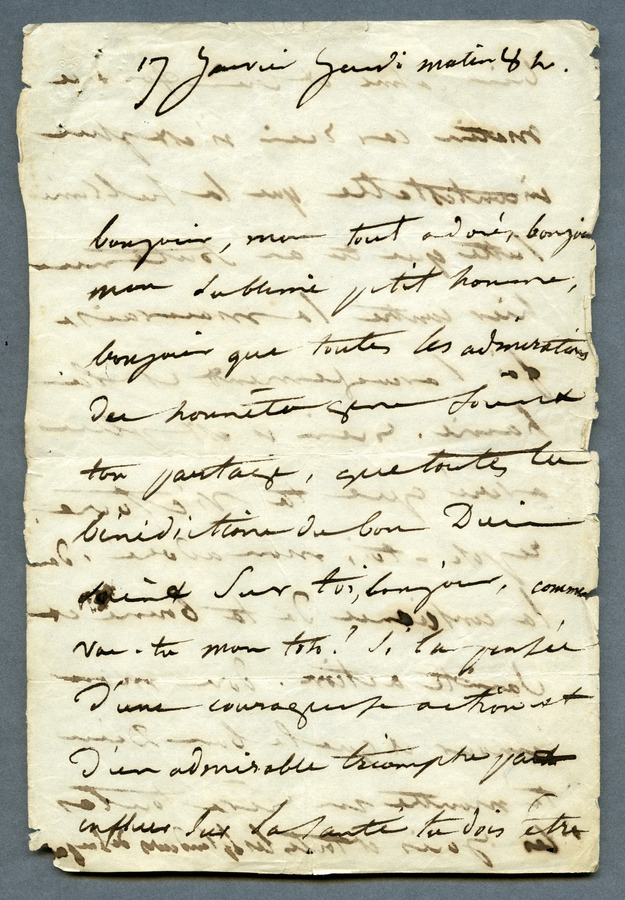 17 Janvier Jeudi matin 8 h.
bonjour, mon tout adoré, bonjour
mon sublime petit homme,
bonjour que toutes les admirations
des honnêtes gens soient
ton partage, que toutes les
bénédictions du bon Dieu
soient sur toi, bonjour, comment
vas-tu mon toto? Si la pensée
d'une courageuse action et
d'un admirable triomphe peut
influer sur la santé tu dois être